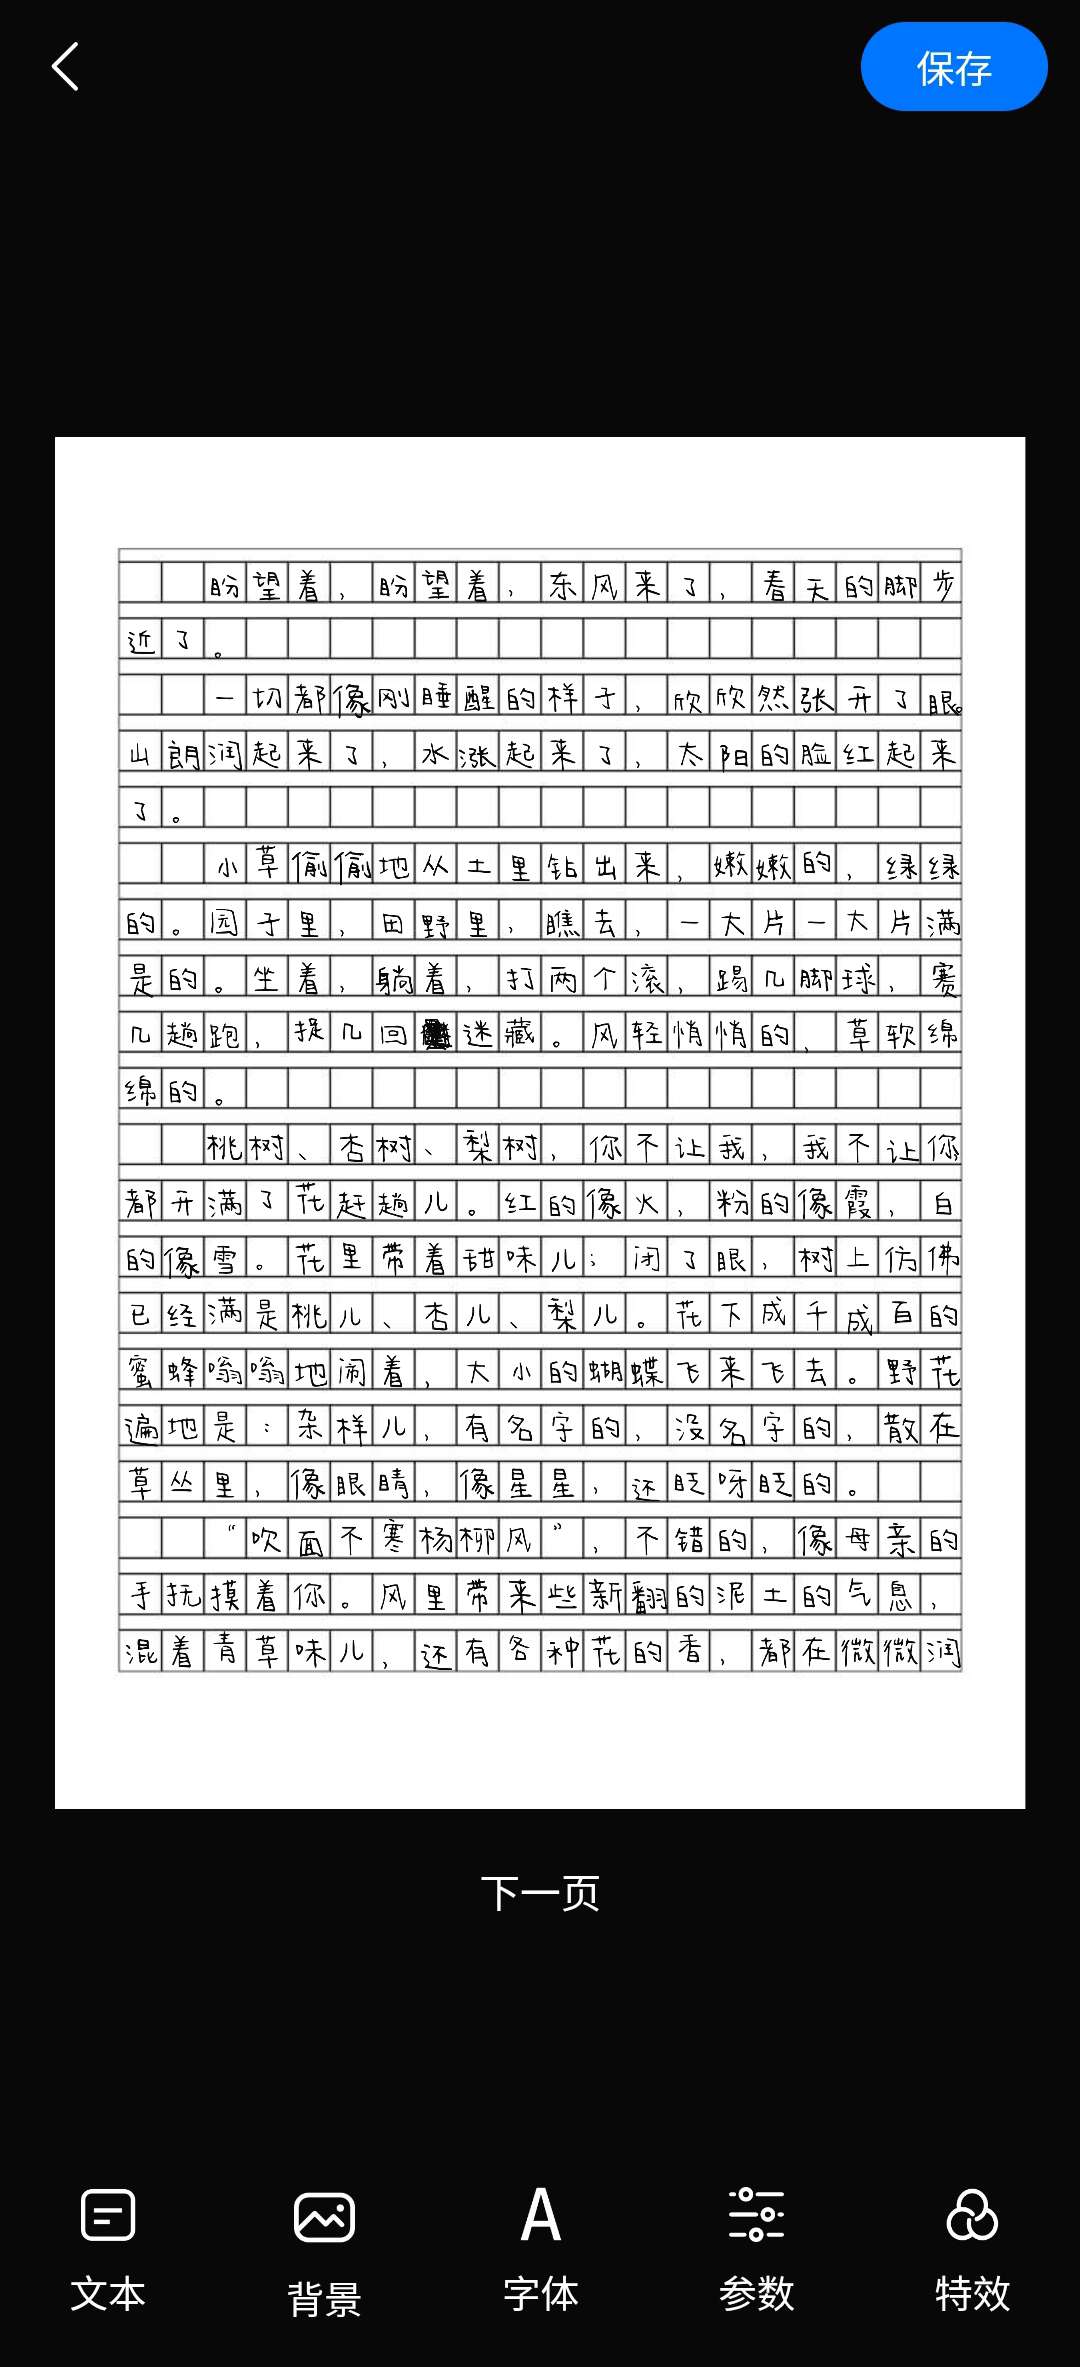 保存
盼望着，盼望着，东风来了，春天的脚步
近了。
一切都像刚睡醒的样子，欣欣然张开了眼。
山朗润起来了，水涨起来了，太阳的脸红起来
了。
小草偷偷地从土里钻出来，嫩嫩的，绿绿
的。园子里，田野里，瞧去，一大片一大片满
是的。坐着，躺着，打两个滚，踢几脚球，赛
几趟跑，捉几回迷藏。风轻悄悄的，草软绵
绵的。
桃树、杏树、梨树，你不让我，我不让你，
都开满了花赶趟儿。红的像火，粉的像霞，白
的像雪。花里带着甜味儿；闭了眼，树上仿佛
已经满是桃儿、杏儿、梨儿。花下成千成百的
蜜蜂嗡嗡地闹着，大小的蝴蝶飞来飞去。野花
遍地是：杂样儿，有名字的，没名字的，散在
草丛里，像眼睛，像星星，还眨呀眨的。
“吹面不寒杨柳风”，不错的，像母亲的
手抚摸着你。风里带来些新翻的泥土的气息，
混着青草味儿，还有各种花的香，都在微微润
下一页
文本 背景 字体 参数 特效